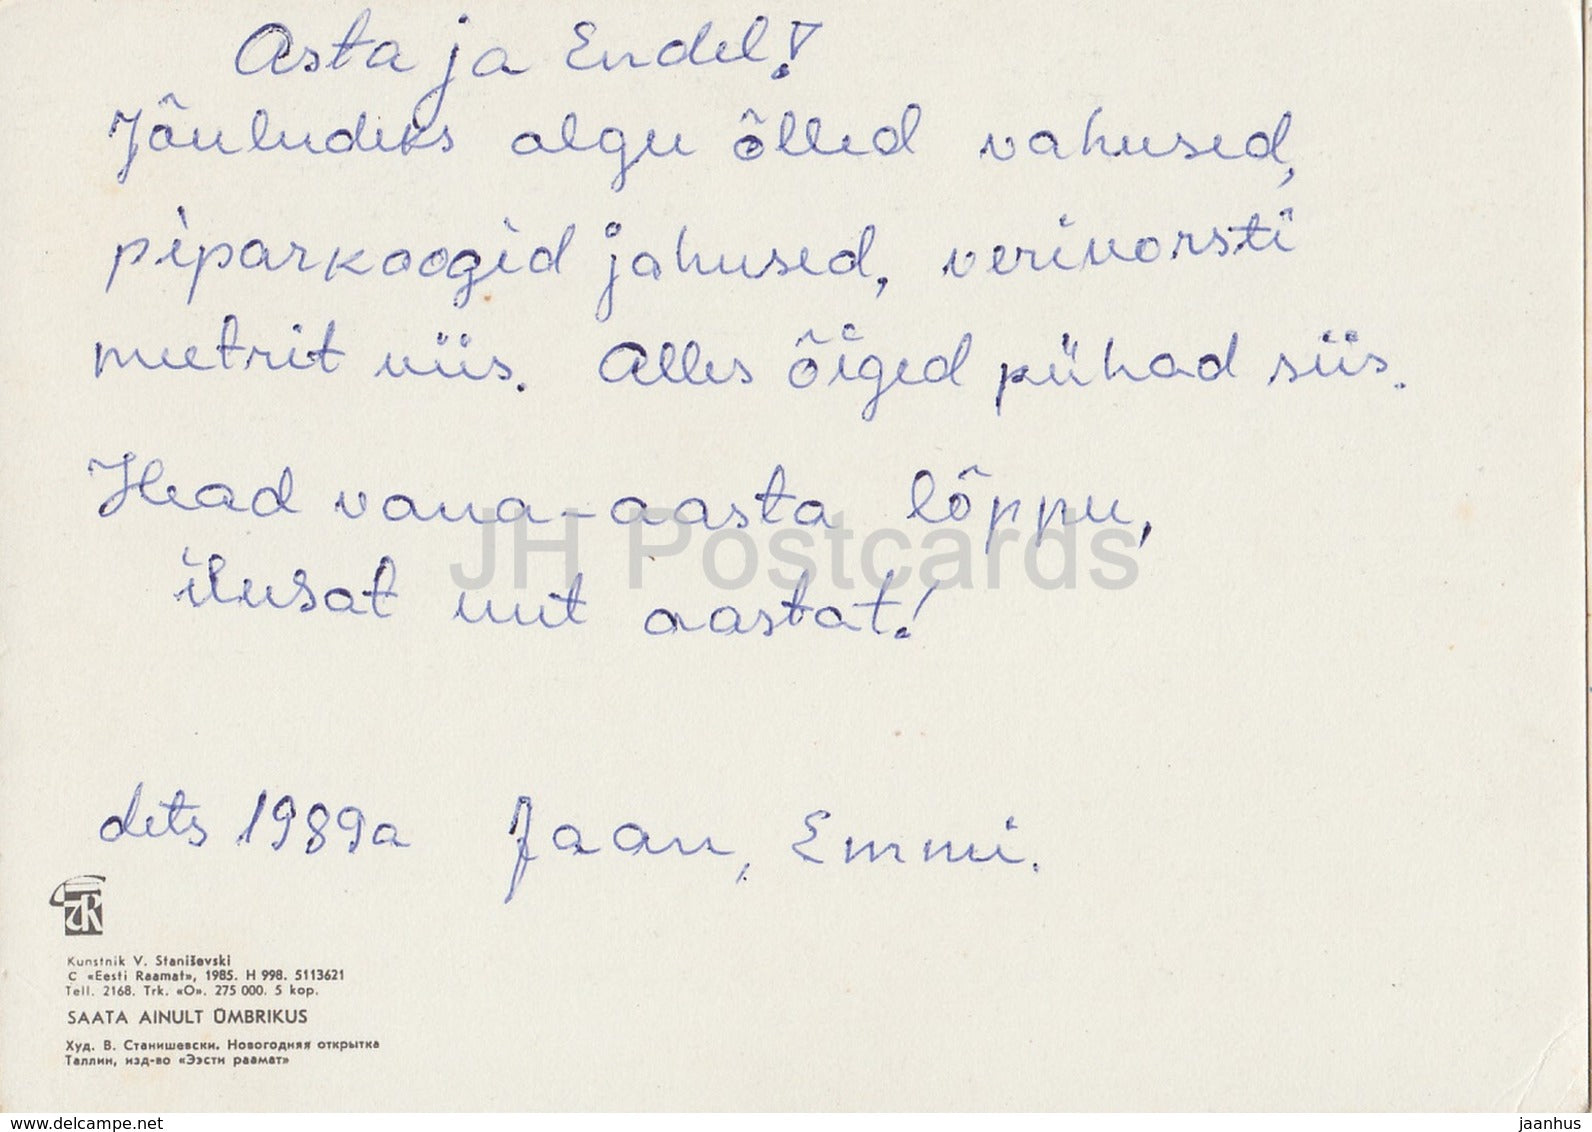 Asta ja Endel!
Jõuludeks olgu õlled vahused,
piparkoogid jahused, verivorsti
meetrit viis. Alles õiged pühad siis.
Head vana-aasta lõppu,
ilusat uut aastat!
dets 1989a Jaan, Emmi.
JH Postcards
TR
Kunstnik V. Staniševski
C «Eesti Raamat», 1985. H 998. 5113621
Tell. 2168. Trk. «O». 275 000. 5 kop.
SAATA AINULT ÜMBRIKUS
Худ. В. Станишевски. Новогодняя открытка
Таллин, изд-во «Ээсти раамат»
www.delcampe.net
jaanhus